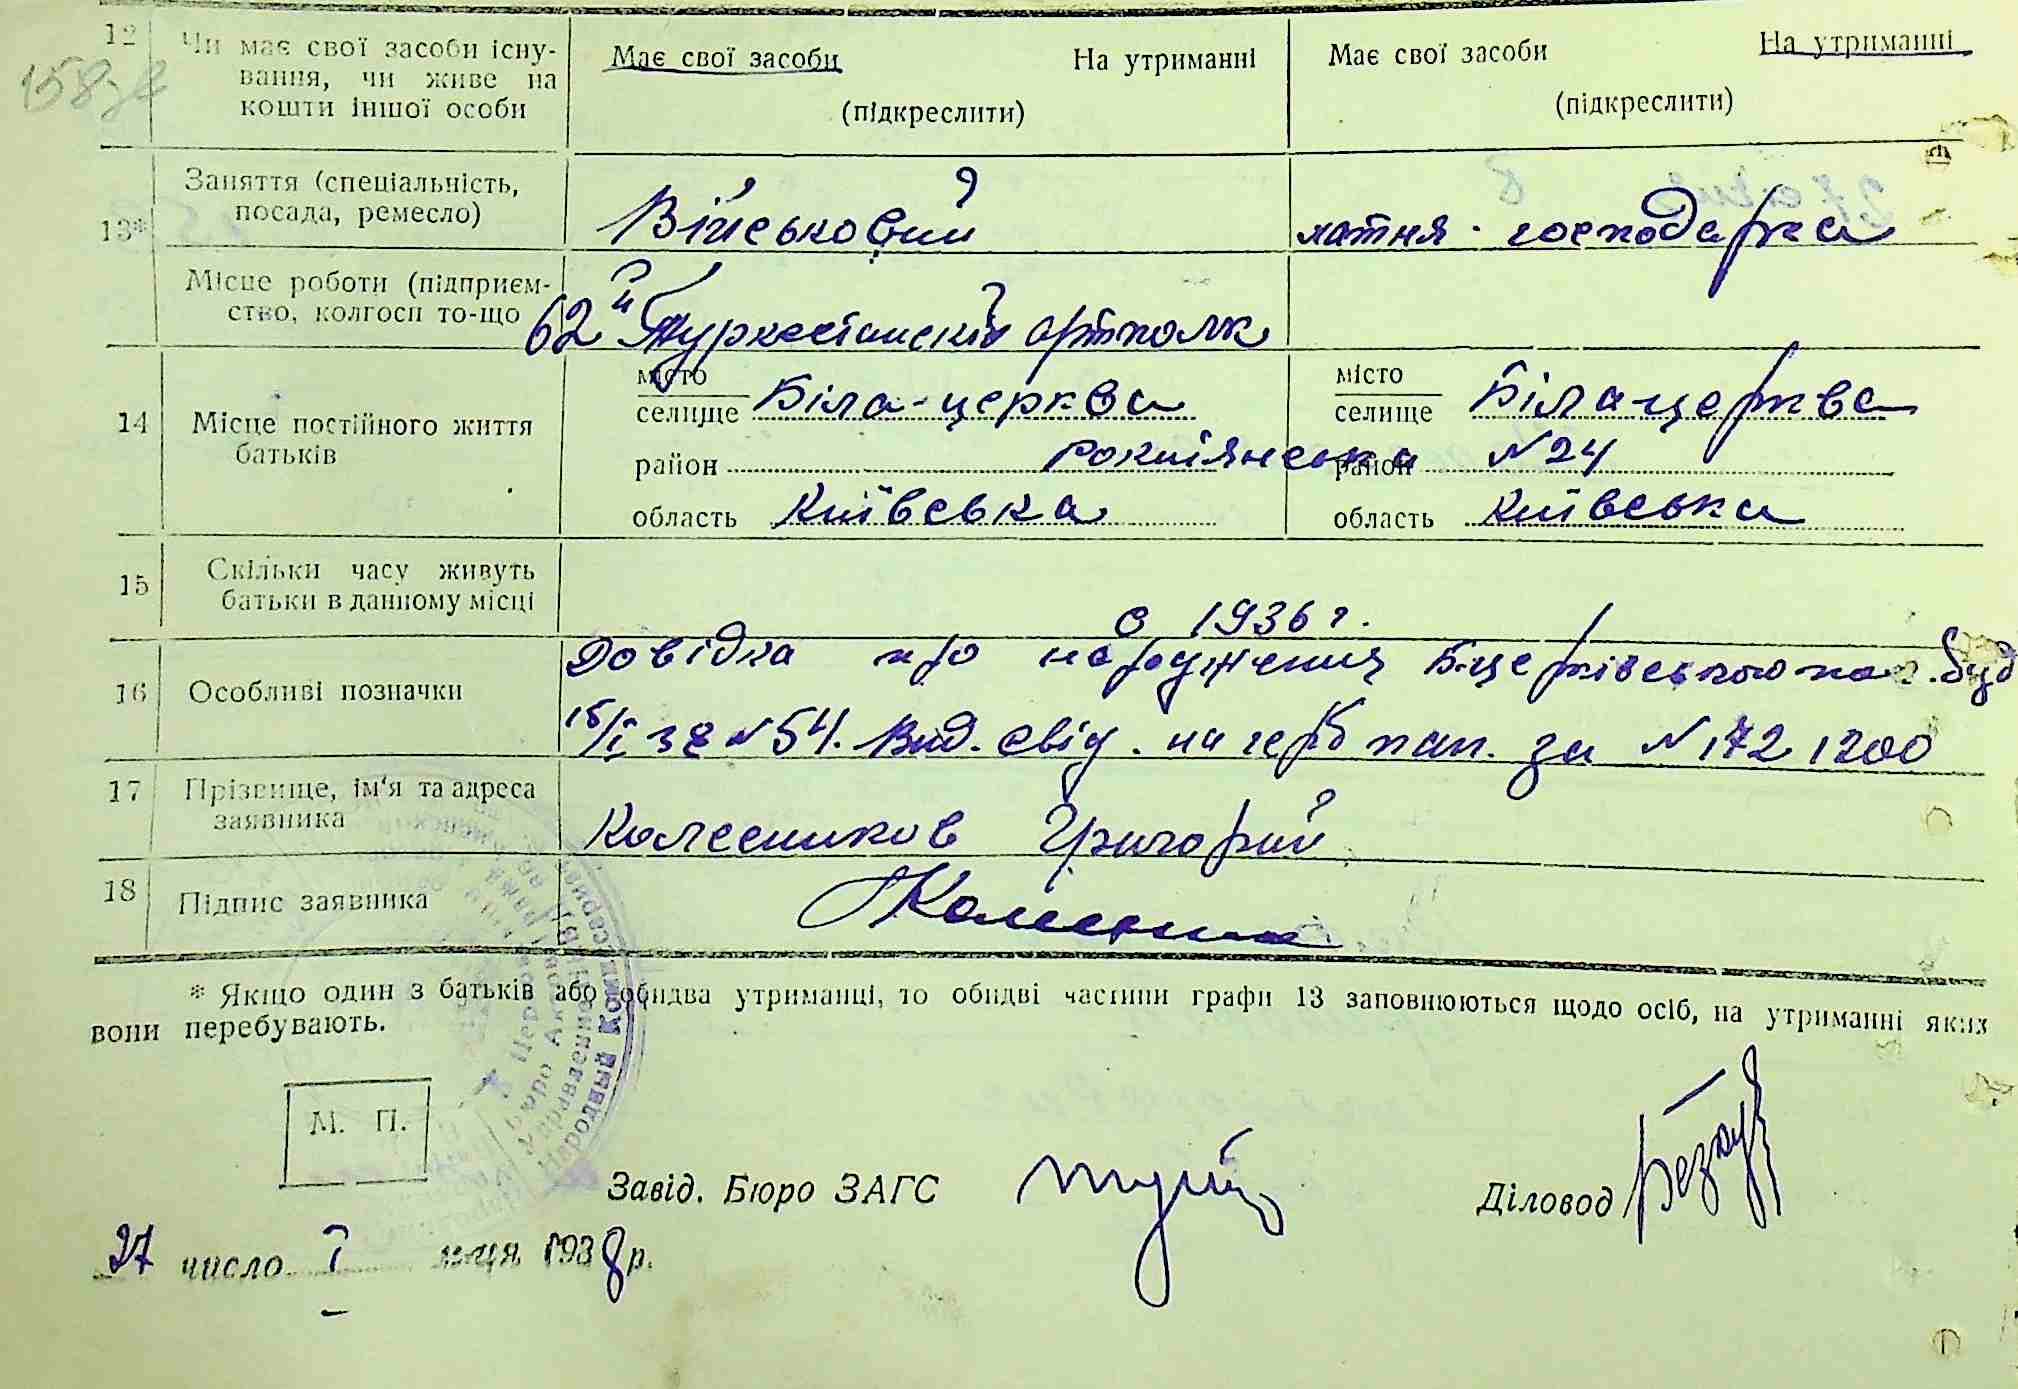 12 Чи має свої засоби існу-
вання, чи живе на
кошти іншої особи
Має свої засоби На утриманні
(підкреслити)
Має свої засоби На утриманні
(підкреслити)
13* Заняття (спеціальність,
посада, ремесло)
Військовий
хатня господарка
Місце роботи (підприєм-
ство, колгосп то-що
62й Туркестанскій артполк
14 Місце постійного життя
батьків
місто
селище Біла-церква
район Рокитянська
область Київська
місто
селище Біла церква
район N 24
область Київська
15 Скільки часу живуть
батьки в данному місці
с 1936 г.
16 Особливі позначки
Довідка про народження Б.церківського пол. буд
15/I 38 N 54. Вид. свід. на герб пап. за N 172 1200
17 Прізвище, ім'я та адреса
заявника
Колесников Григорий
18 Підпис заявника
* Якщо один з батьків або обидва утриманці, то обидві частини графи 13 заповнюються щодо осіб, на утриманні яких
вони перебувають.
М. П.
Завід. Бюро ЗАГС
Діловод
27 число I м-ця 1938 р.